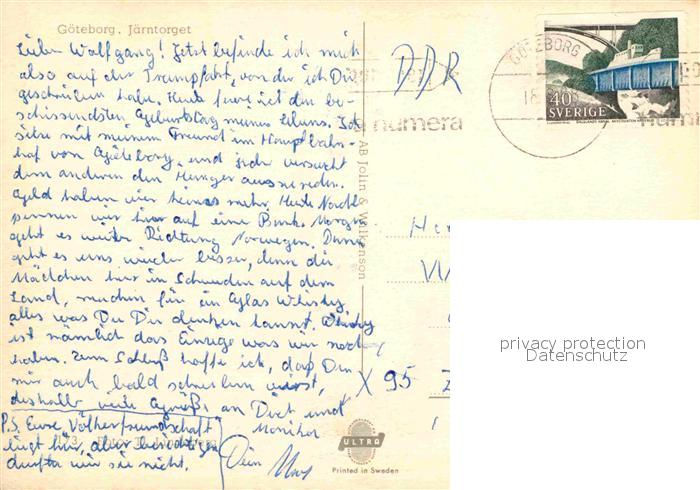 Göteborg. Järntorget
Lieber Wolfgang! Jetzt befinde ich mich
also auf der Trampfahrt, von der ich Dir
geschrieben habe. Heute feiere ich den be-
schissendsten Geburtstag meines Lebens. Ich
sitze mit meinem Freund im Hauptbahn-
hof von Göteborg, und jeder versucht
dem anderen den Hunger auszureden.
Geld haben wir keines mehr. Heute Nacht
pennen wir hier auf eine Bank. Morgen
geht es weiter Richtung Norwegen. Dann
geht es uns wieder besser, denn die
Mädchen hier in Schweden auf dem
Land, machen für ein Glas Whisky
alles was Du Dir denken kannst. Whisky
ist nämlich das Einzige was wir noch
haben. Zum Schluß hoffe ich, daß Du
mir auch bald schreiben wirst,
deshalb viele Grüße, an Dich und
Monika
P.S. Eure Völkerfreundschaft
liegt hier, aber besichtigen
durfte wir sie nicht.
Dein
173. Foto:
AB John & Walkenson
ULTRA
Printed in Sweden
DDR
GÖTEBORG
18
numera
40
SVERIGE
X 95
privacy protection
Datenschutz